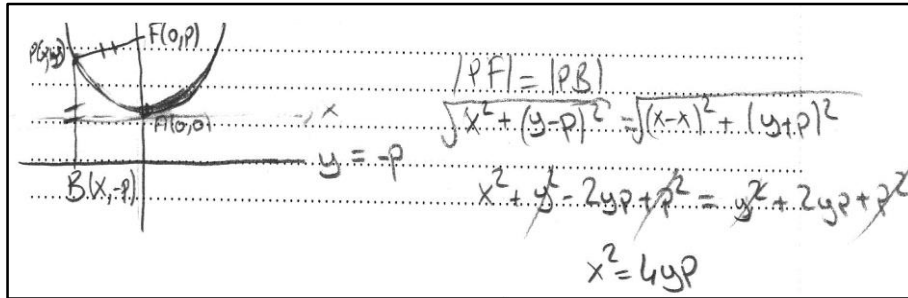 F(0,p)
P(x,y)
A(0,0)
x
y = -p
B(x,-p)
|PF| = |PB|
√(x² + (y-p)²) = √((x-x)² + (y+p)²)
x² + y² - 2yp + p² = y² + 2yp + p²
x² = 4yp